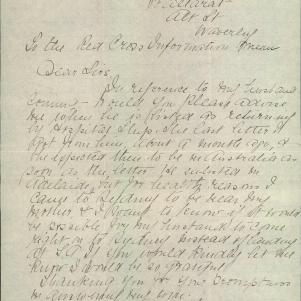 Alt St
Waverley
To the Red Cross Information Bureau
Dear Sirs,
In reference to my husband
would you please advise
me when he is listed as returning
by Hospital Ship. The last letter I
got from him, about a month ago, &
he expected then to be in Australia as
soon as the letter. He enlisted in
Adelaide but for health reasons I
came to Sydney to be near my
Mother & I want to know if it would
be possible for my husband to come
right on to Sydney instead of landing
at S.A. If you would kindly let me
know I would be so grateful.
Thanking you for your promptness
in answering my wire.